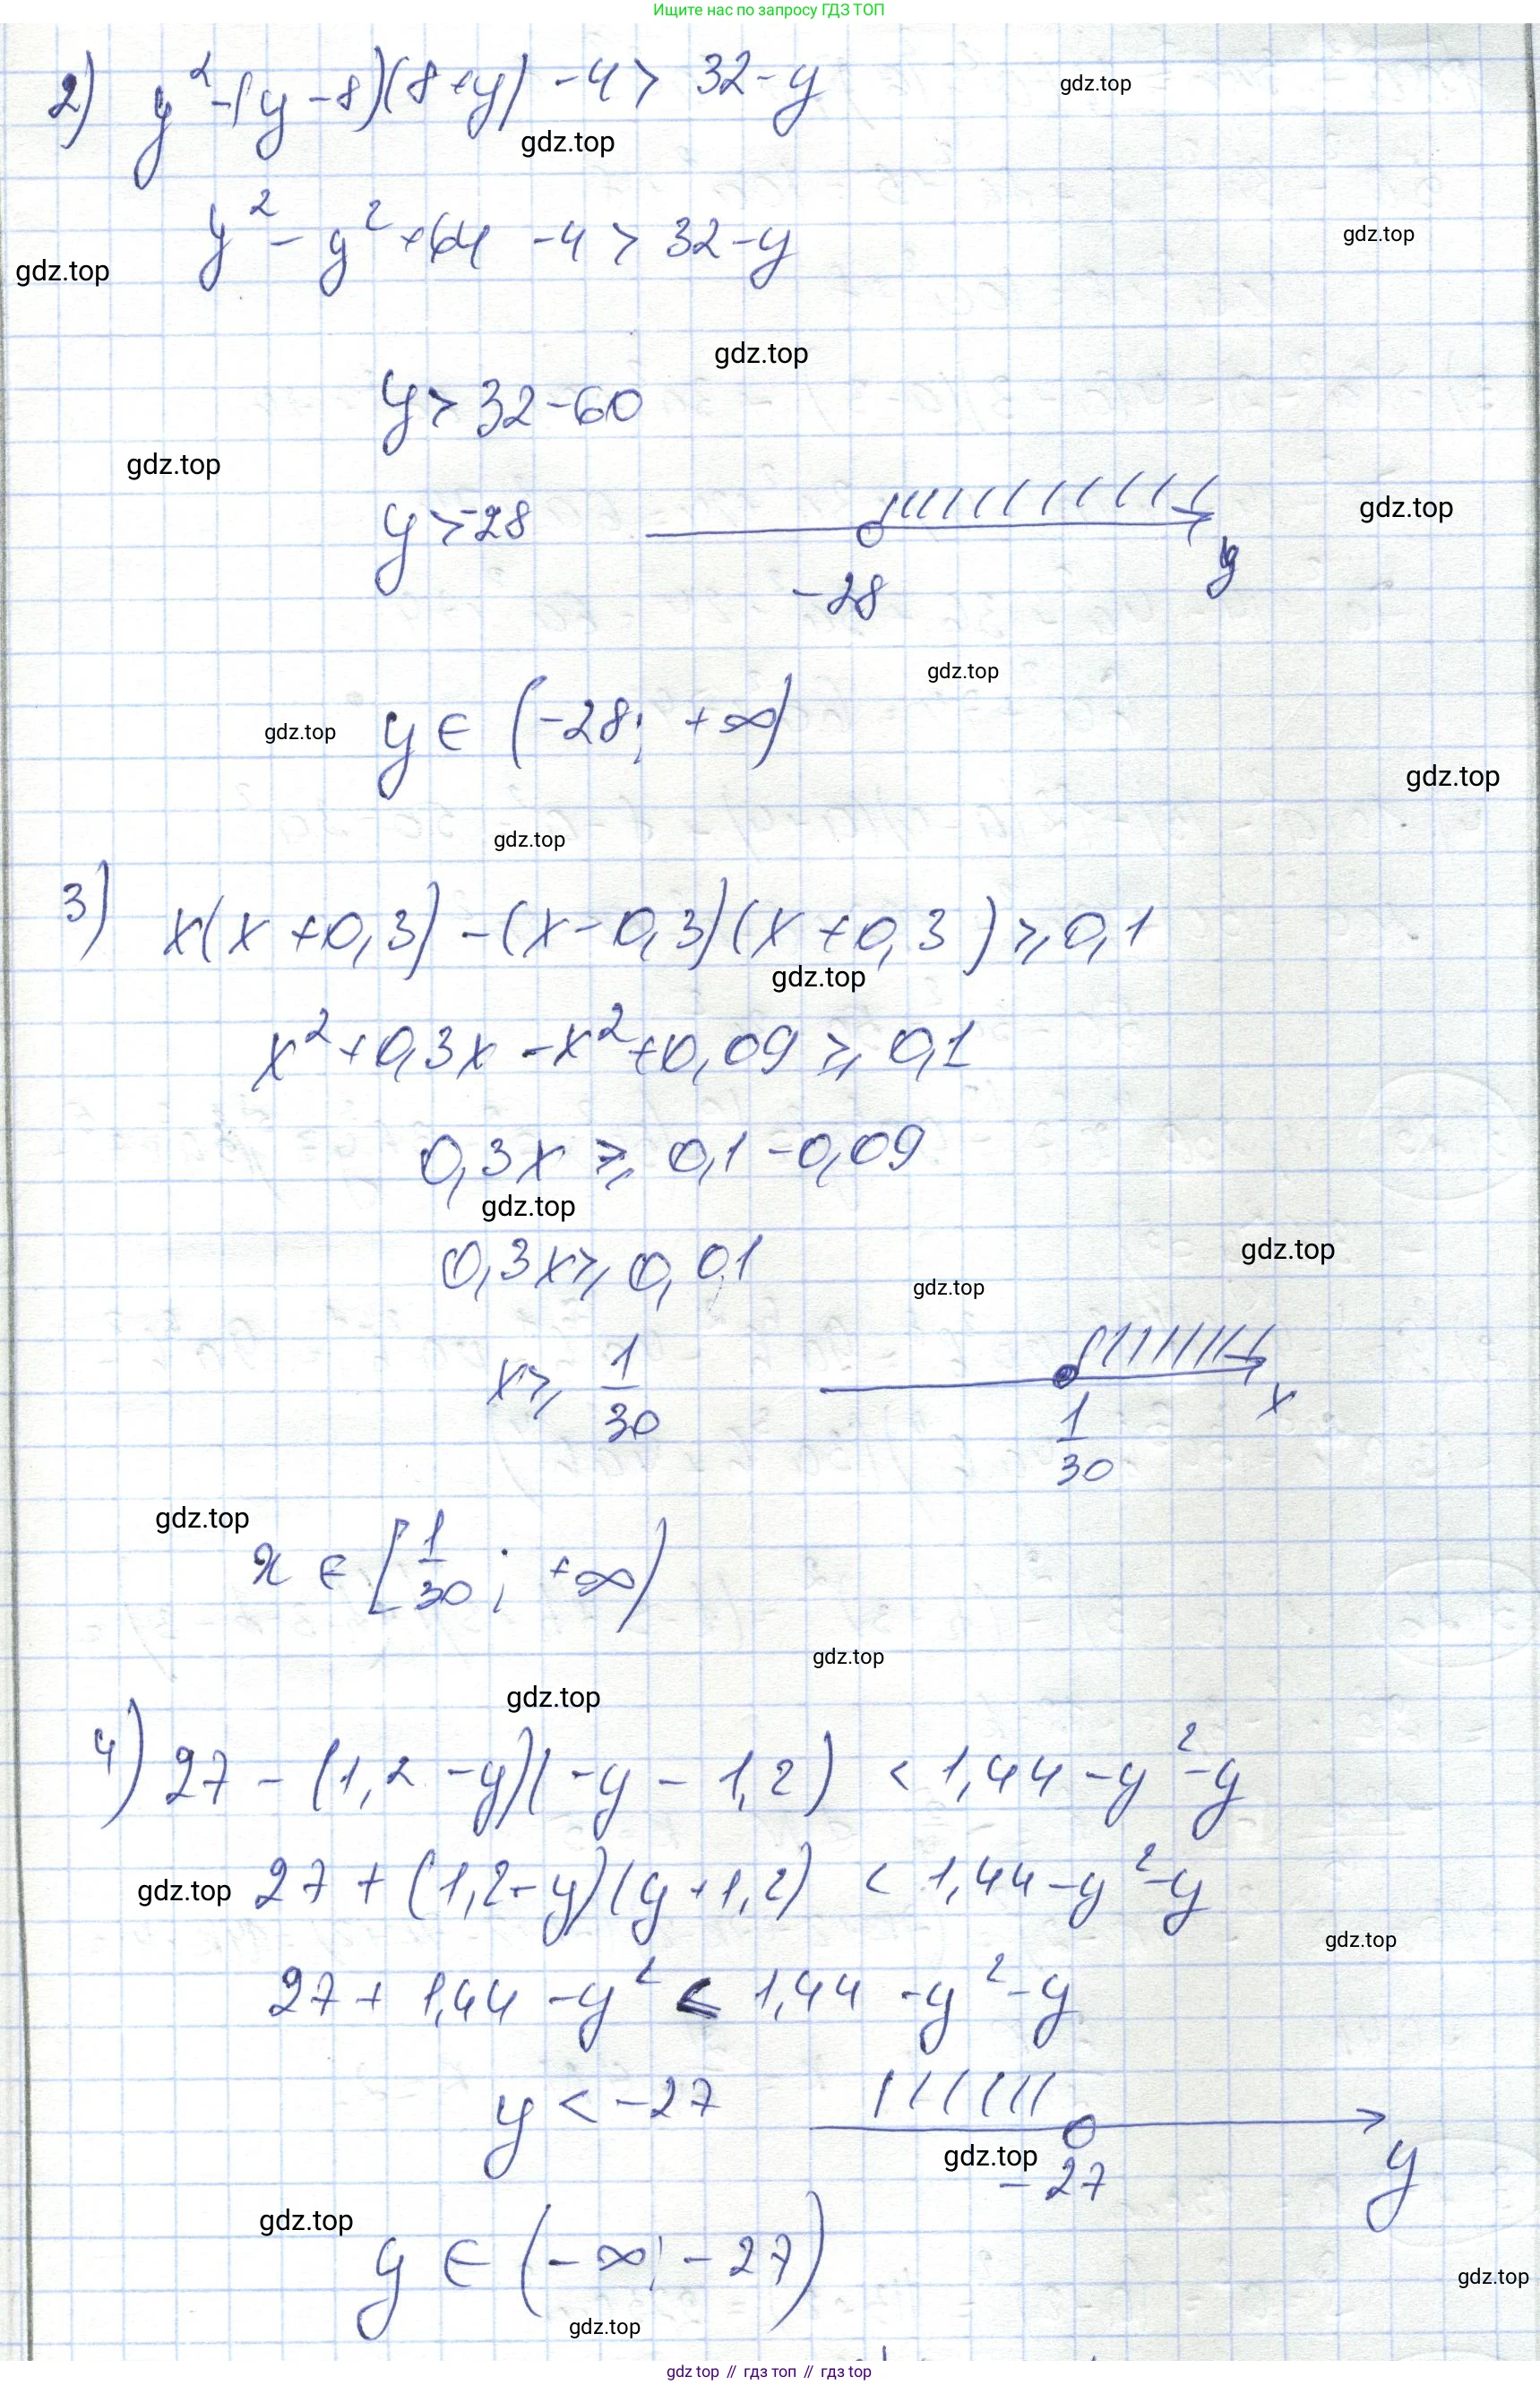 Ищите нас по запросу ГДЗ ТОП
2) y² - (y - 8)(8 + y) - 4 > 32 - y
gdz.top
gdz.top
y² - y² + 64 - 4 > 32 - y
gdz.top
gdz.top
gdz.top
y > 32 - 60
gdz.top
y > -28
gdz.top
y
-28
gdz.top
y ∈ (-28; +∞)
gdz.top
gdz.top
gdz.top
3) x(x + 0,3) - (x - 0,3)(x + 0,3) ⩾ 0,1
gdz.top
x² + 0,3x - x² + 0,09 ⩾ 0,1
0,3x ⩾ 0,1 - 0,09
gdz.top
0,3x ⩾ 0,01
gdz.top
gdz.top
x ⩾ 1/30
x
1/30
gdz.top
x ∈ [1/30; +∞)
gdz.top
gdz.top
4) 27 - (1,2 - y)(-y - 1,2) < 1,44 - y² - y
gdz.top
27 + (1,2 - y)(y + 1,2) < 1,44 - y² - y
gdz.top
27 + 1,44 - y² < 1,44 - y² - y
y < -27
gdz.top
-27
y
gdz.top
y ∈ (-∞; -27)
gdz.top
gdz.top
gdz top // гдз топ // гдз top